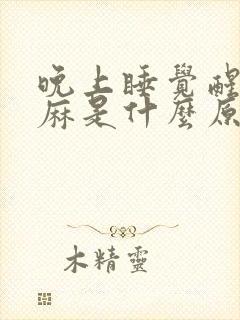 晚上睡覺醒
麻是什麼原
木精靈